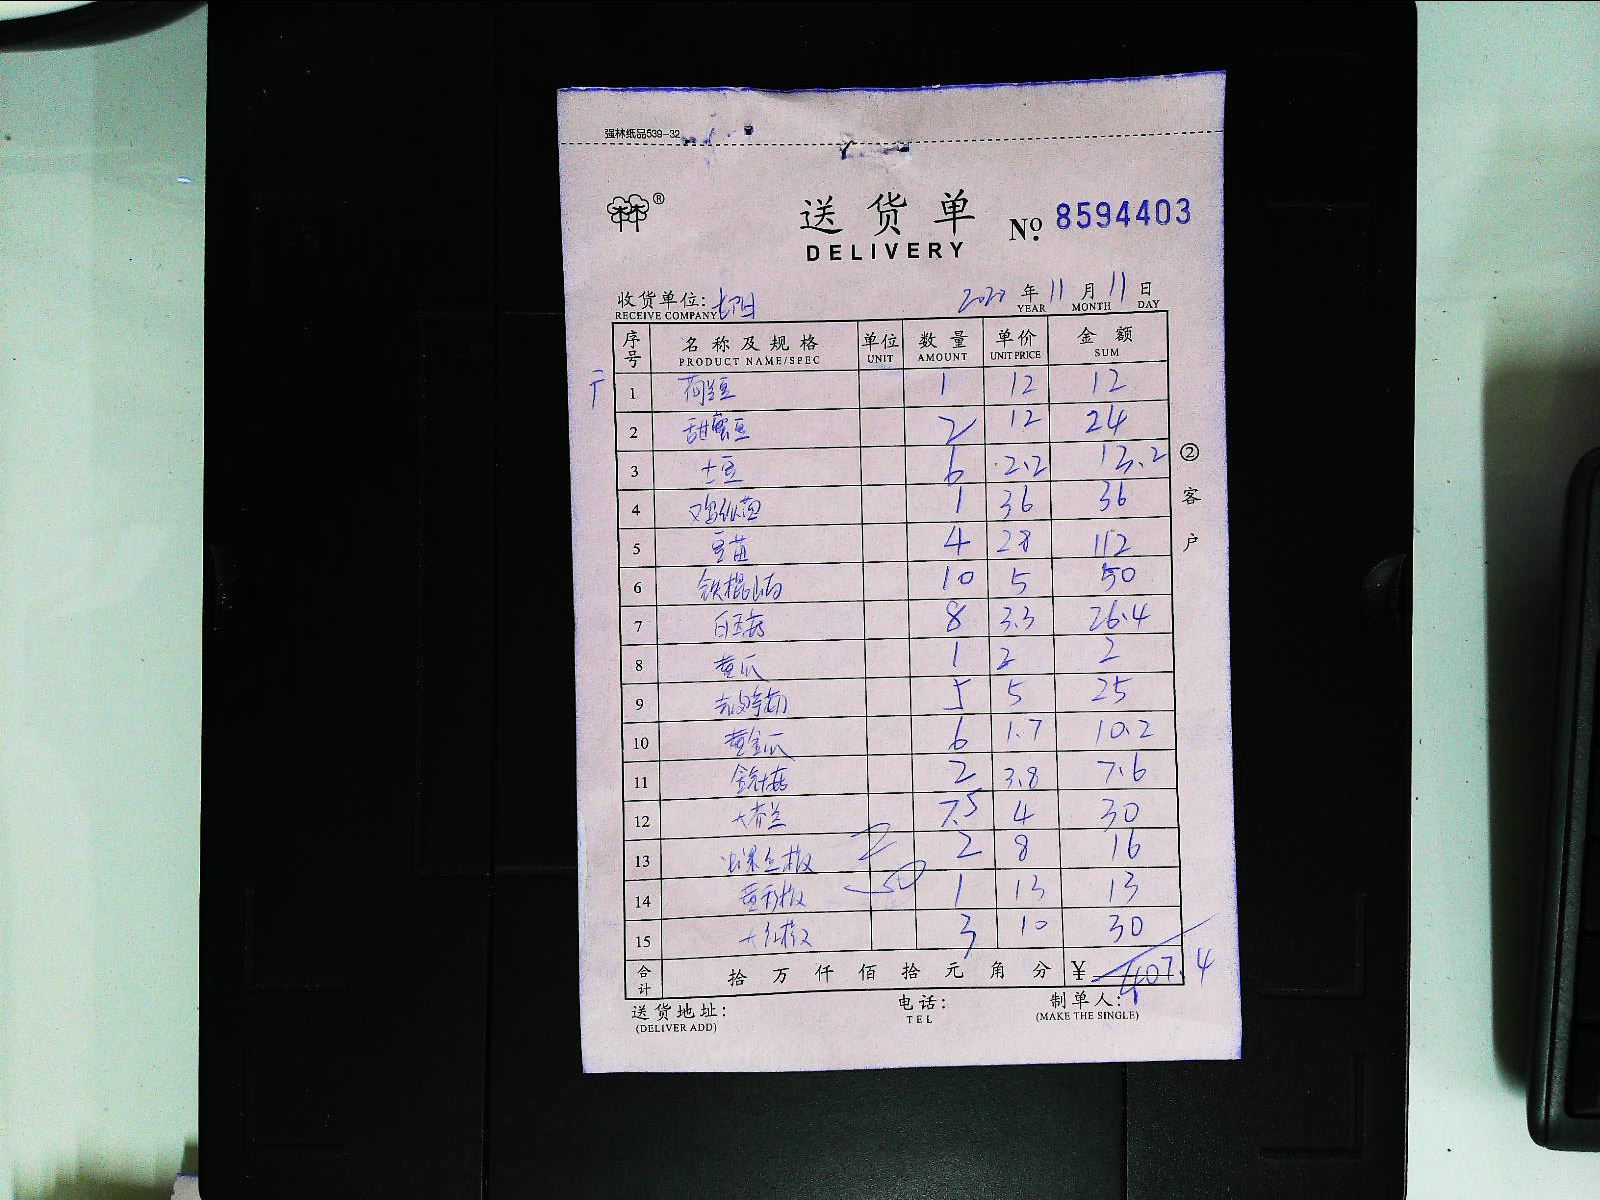 强林纸品539-32
林®
送货单 No. 8594403
DELIVERY
收货单位: 2020年11月11日
RECEIVE COMPANY YEAR MONTH DAY
序号 名称及规格 单位 数量 单价 金额
PRODUCT NAME/SPEC UNIT AMOUNT UNIT PRICE SUM
1 荷兰豆 1 12 12
2 甜蜜豆 2 12 24
3 土豆 6 2.2 13.2
4 鸡枞菌 1 36 36
5 豆苗 4 28 112
6 铁棍山药 10 5 50
7 白玉菇 8 3.3 26.4
8 黄瓜 1 2 2
9 5 5 25
10 黄金瓜 6 1.7 10.2
11 金针菇 2 3.8 7.6
12 大芥兰 7.5 4 30
13 2 8 16
14 黄彩椒 1 13 13
15 大红椒 3 10 30
合计 拾万仟佰拾元角分 ¥ 407.4
送货地址: 电话: 制单人:
(DELIVER ADD) TEL (MAKE THE SINGLE)
②客户